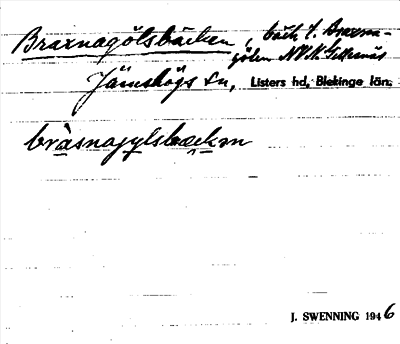 Braxnagölsbäcken, bäck t. Braxna-
gölen NV N.
Jämshögs sn, Listers hd, Blekinge län.
bràsnajylsbäckm
J. SWENNING 1946